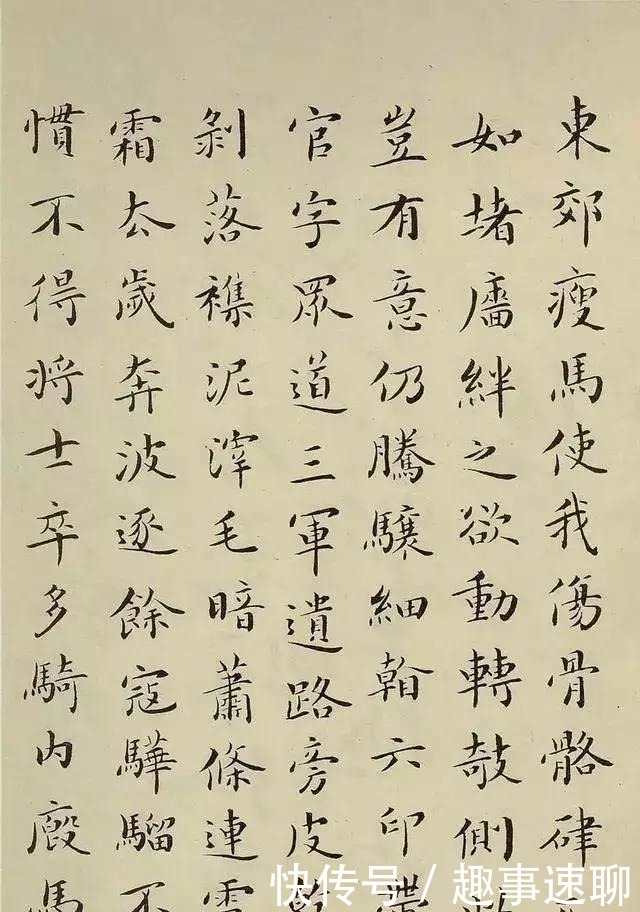 東郊瘦馬使我傷骨骼硉
如堵牆絆之欲動轉欹側
豈有意仍騰驤細看六印帶
官字眾道三軍遺路旁皮
剝落雜泥滓毛暗蕭條連雪
霜去歲奔波逐餘寇驊騮不
慣不得將士卒多騎內廄馬
快传号 / 趣事速聊